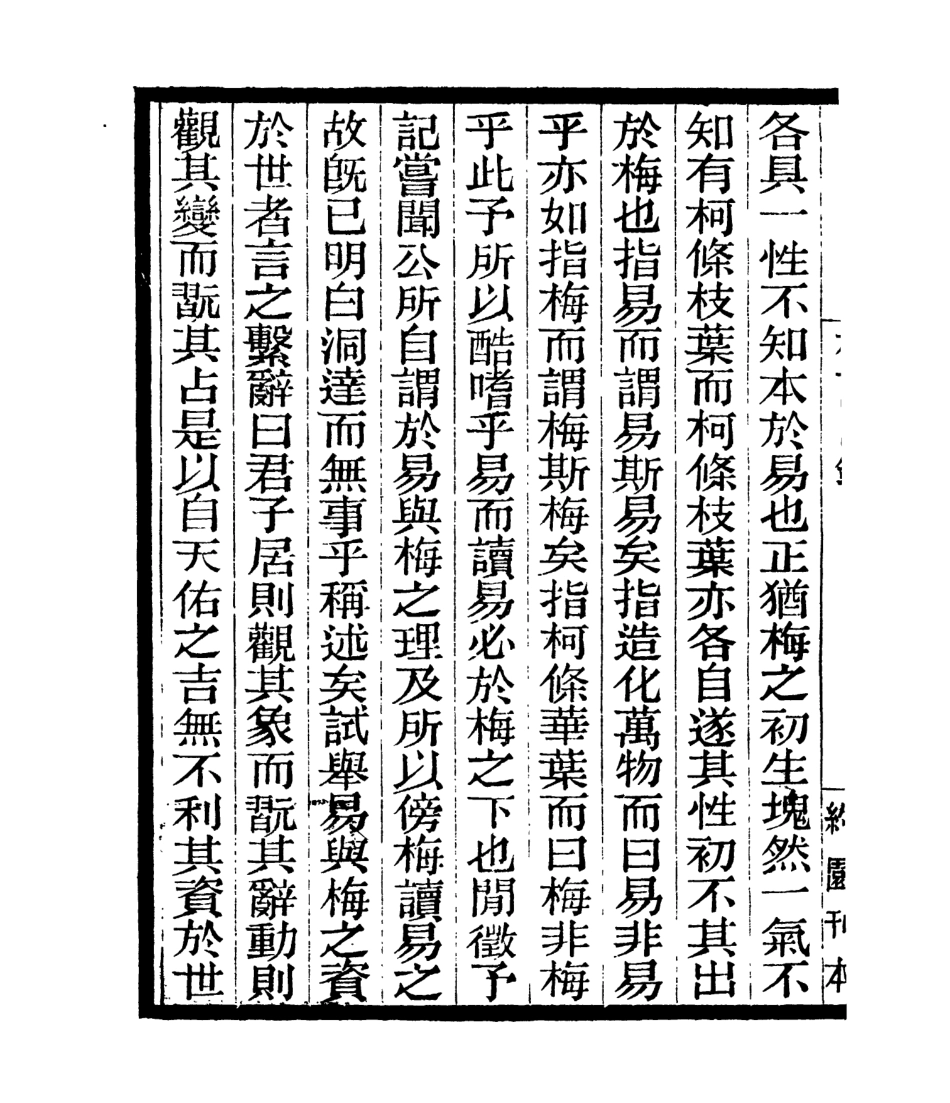 各具一性不知本於易也正猶梅之初生塊然一氣不
知有柯條枝葉而柯條枝葉亦各自遂其性初不其出
於梅也指易而謂易斯易矣指造化萬物而曰易非易
乎亦如指梅而謂梅斯梅矣指柯條華葉而曰梅非梅
乎此予所以酷嗜乎易而讀易必於梅之下也閒徵予
記嘗聞公所自謂於易與梅之理及所以傍梅讀易之
故旣已明白洞達而無事乎稱述矣試舉易與梅之資
於世者言之繫辭曰君子居則觀其象而翫其辭動則
觀其變而翫其占是以自天佑之吉無不利其資於世
園刊本